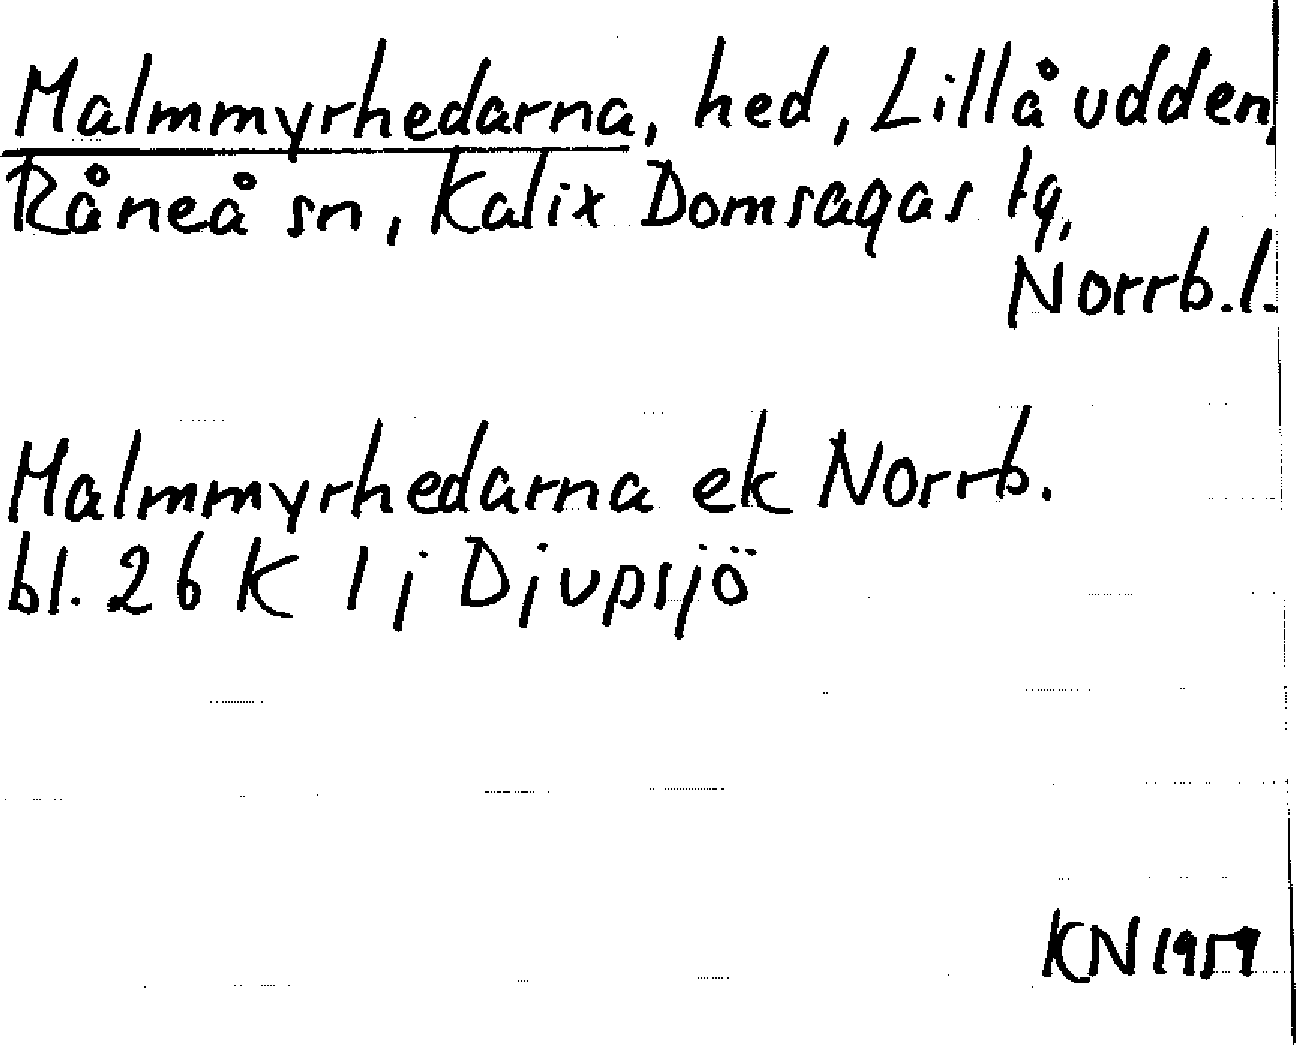 Malmmyrhedarna, hed, Lillåudden,
Råneå sn, Kalix Domsagas tg,
Norrb.l.
Malmmyrhedarna ek Norrb.
bl. 26 K 1 j Djupsjö
KN 1959